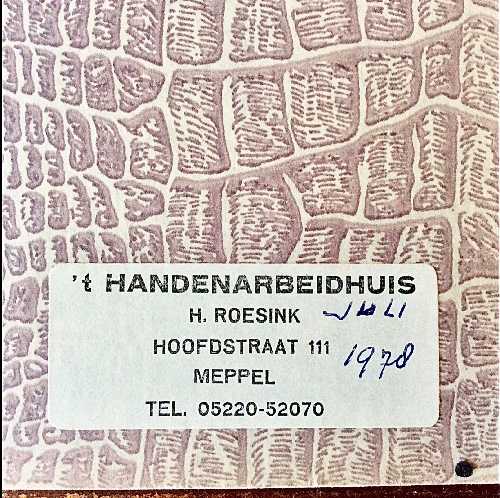 't HANDENARBEIDHUIS
H. ROESINK JULI
HOOFDSTRAAT 111 1978
MEPPEL
TEL. 05220-52070